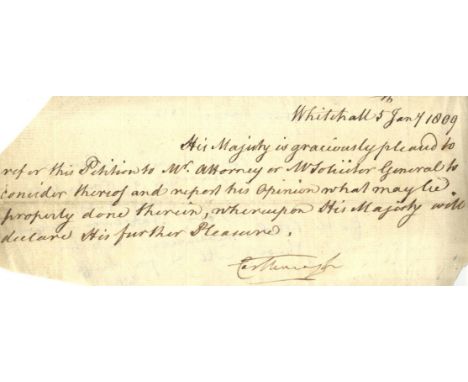 Whitehall 5th Jany 1809
His Majesty is graciously pleased to
refer this Petition to Mr. Attorney or Mr Solicitor General to
consider thereof and report his Opinion what may be
properly done therein, whereupon His Majesty will
declare His further Pleasure.